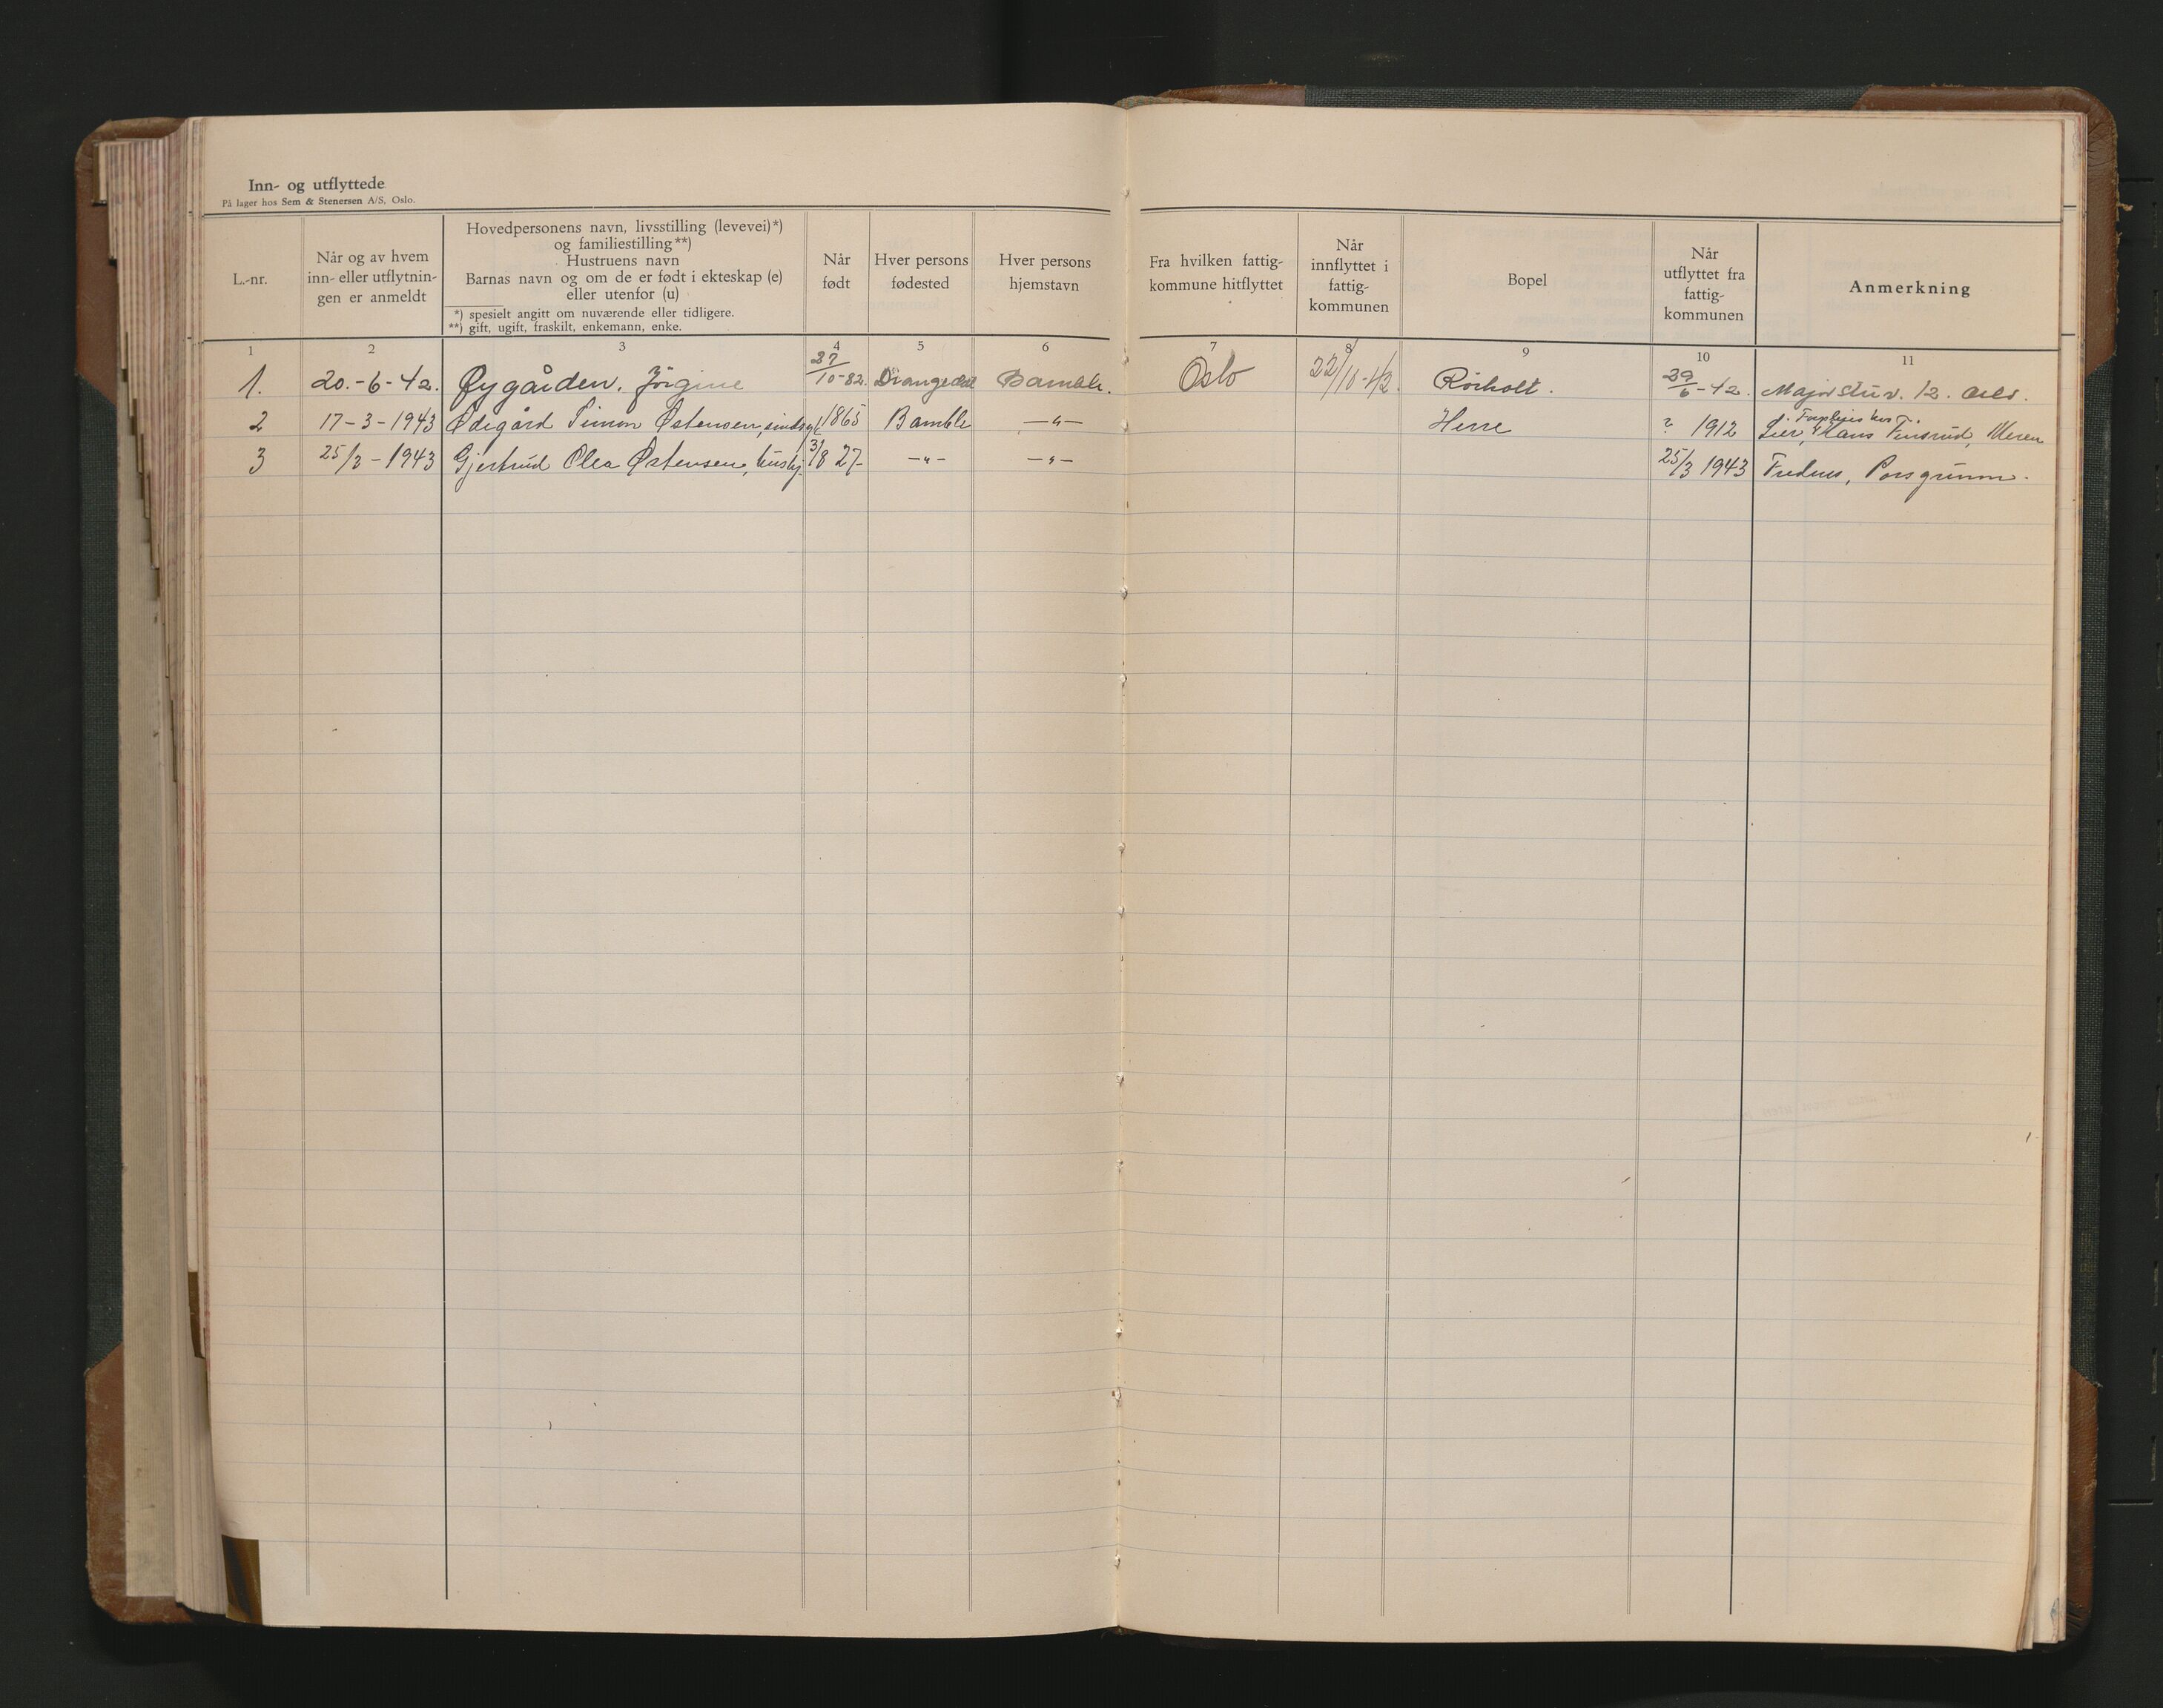 Inn- og utflyttede
På lager hos Sem & Stenersen A/S, Oslo.
L.-nr.
Når og av hvem
inn- eller utflytnin-
gen er anmeldt
Hovedpersonens navn, livsstilling (levevei)*)
og familiestilling**)
Hustruens navn
Barnas navn og om de er født i ekteskap (e)
eller utenfor (u)
*) spesielt angitt om nuværende eller tidligere.
**) gift, ugift, fraskilt, enkemann, enke.
Når
født
Hver persons
fødested
Hver persons
hjemstavn
Fra hvilken fattig-
kommune hitflyttet
Når
innflyttet i
fattig-
kommunen
Bopel
Når
utflyttet fra
fattig-
kommunen
Anmerkning
1 2 3 4 5 6 7 8 9 10 11
1. 20.-6-42. Øygården, Jörgine 27/10-82. Drangedal Bamble. Oslo 22/10-42. Rörholt. 29/6-42. Majorstuv. 12. Oslo.
2 17-3-1943 Ødegård Simon Østensen, sindsyk 1865 Bamble —"— Herre ? 1912 Lier, Hans Finsrud,
3 25/3-1943 Gjertrud Olea Østensen, hushj. 3/8 27- —"— —"— 25/3 1943 Porsgrunn.